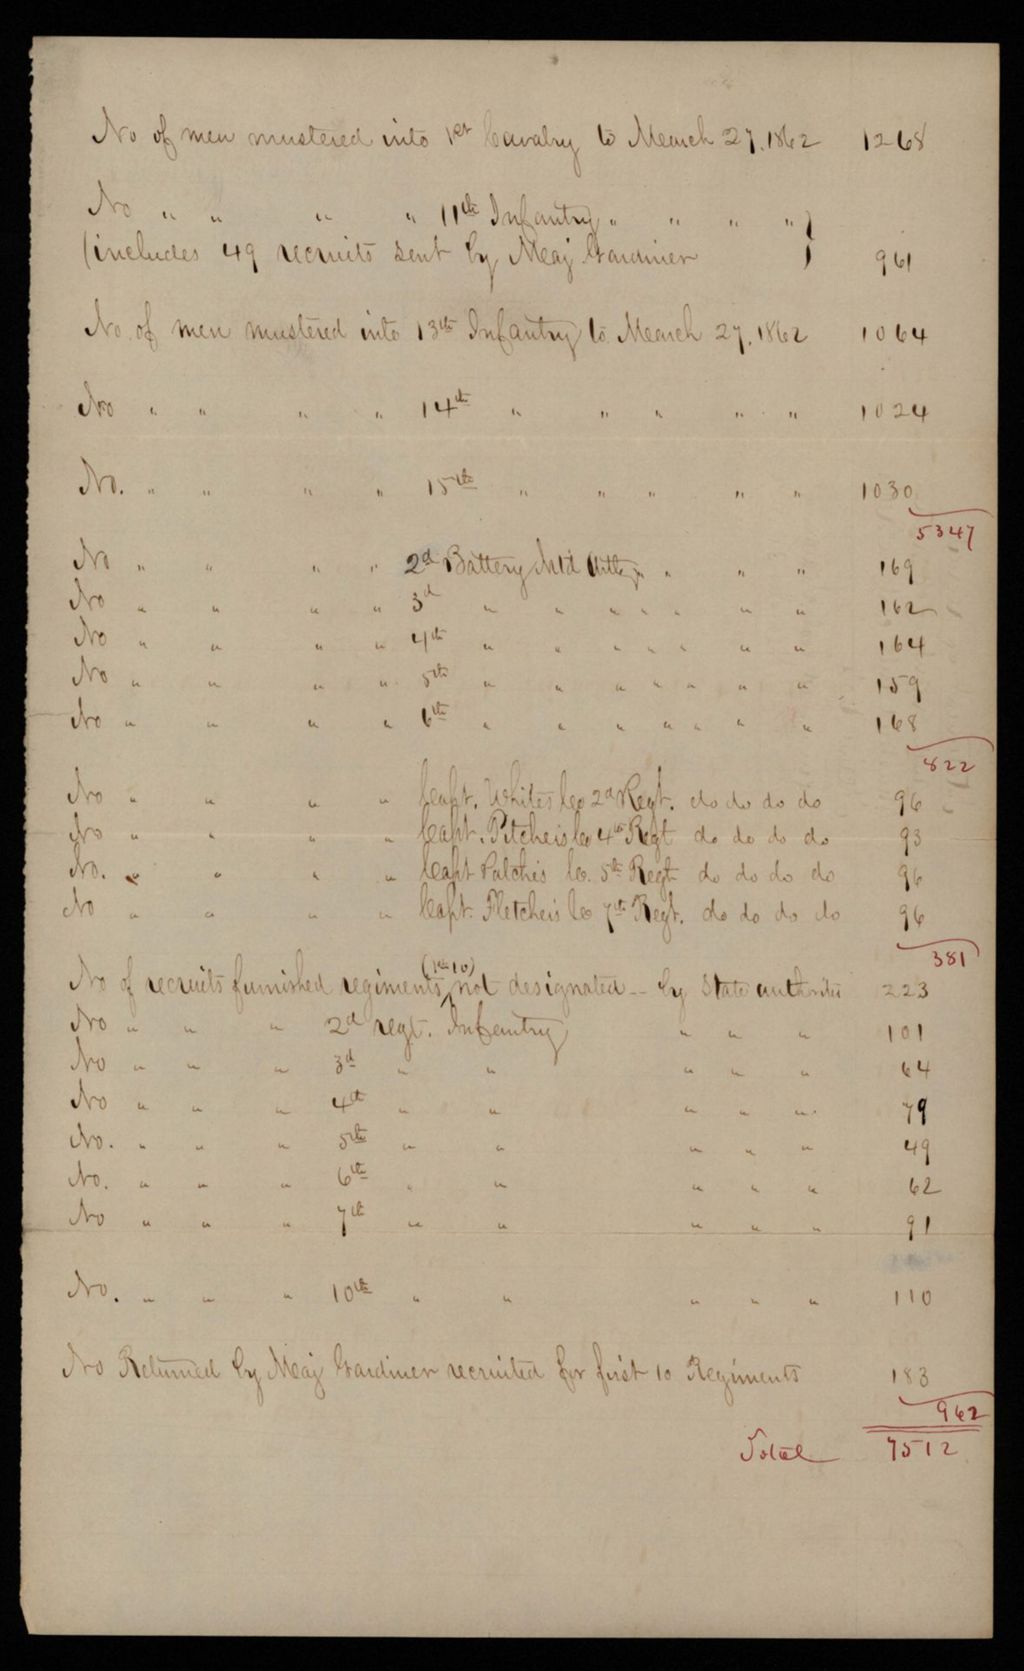 No of men mustered into 1st Cavalry to March 27. 1862 1268
No " " " " 11th Infantry " " " " }
(includes 49 recruits sent by Maj Gardiner } 961
No. of men mustered into 13th Infantry to March 27. 1862 1064
No " " " " 14th " " " " " 1024
No. " " " " 15th " " " " " 1030
5347
No " " " " 2d Battery Mtd Artlly " " " " 169
No " " " " 3d " " " " " " " 162
No " " " " 4th " " " " " " " 164
No " " " " 5th " " " " " " " 159
No " " " " 6th " " " " " " " 168
822
No " " " " Capt. Whites Co 2d Regt. do do do do 96
No " " " " Capt. Pitchers Co 4th Regt do do do do 93
No. " " " " Capt Co. 5th Regt do do do do 96
No " " " " Capt. Fletchers Co 7th Regt. do do do do 96
381
(1st 10)
No of recruits furnished regiments ^ not designated -- by State authorities 223
No " " " 2d regt. Infantry " " " 101
No " " " 3d " " " " " 64
No " " " 4th " " " " " 79
No. " " " 5th " " " " " 49
No. " " " 6th " " " " " 62
No " " " 7th " " " " " 91
No. " " " 10th " " " " " 110
No Returned by Maj Gardiner recruited for first 10 Regiments 183
962
Total 7512